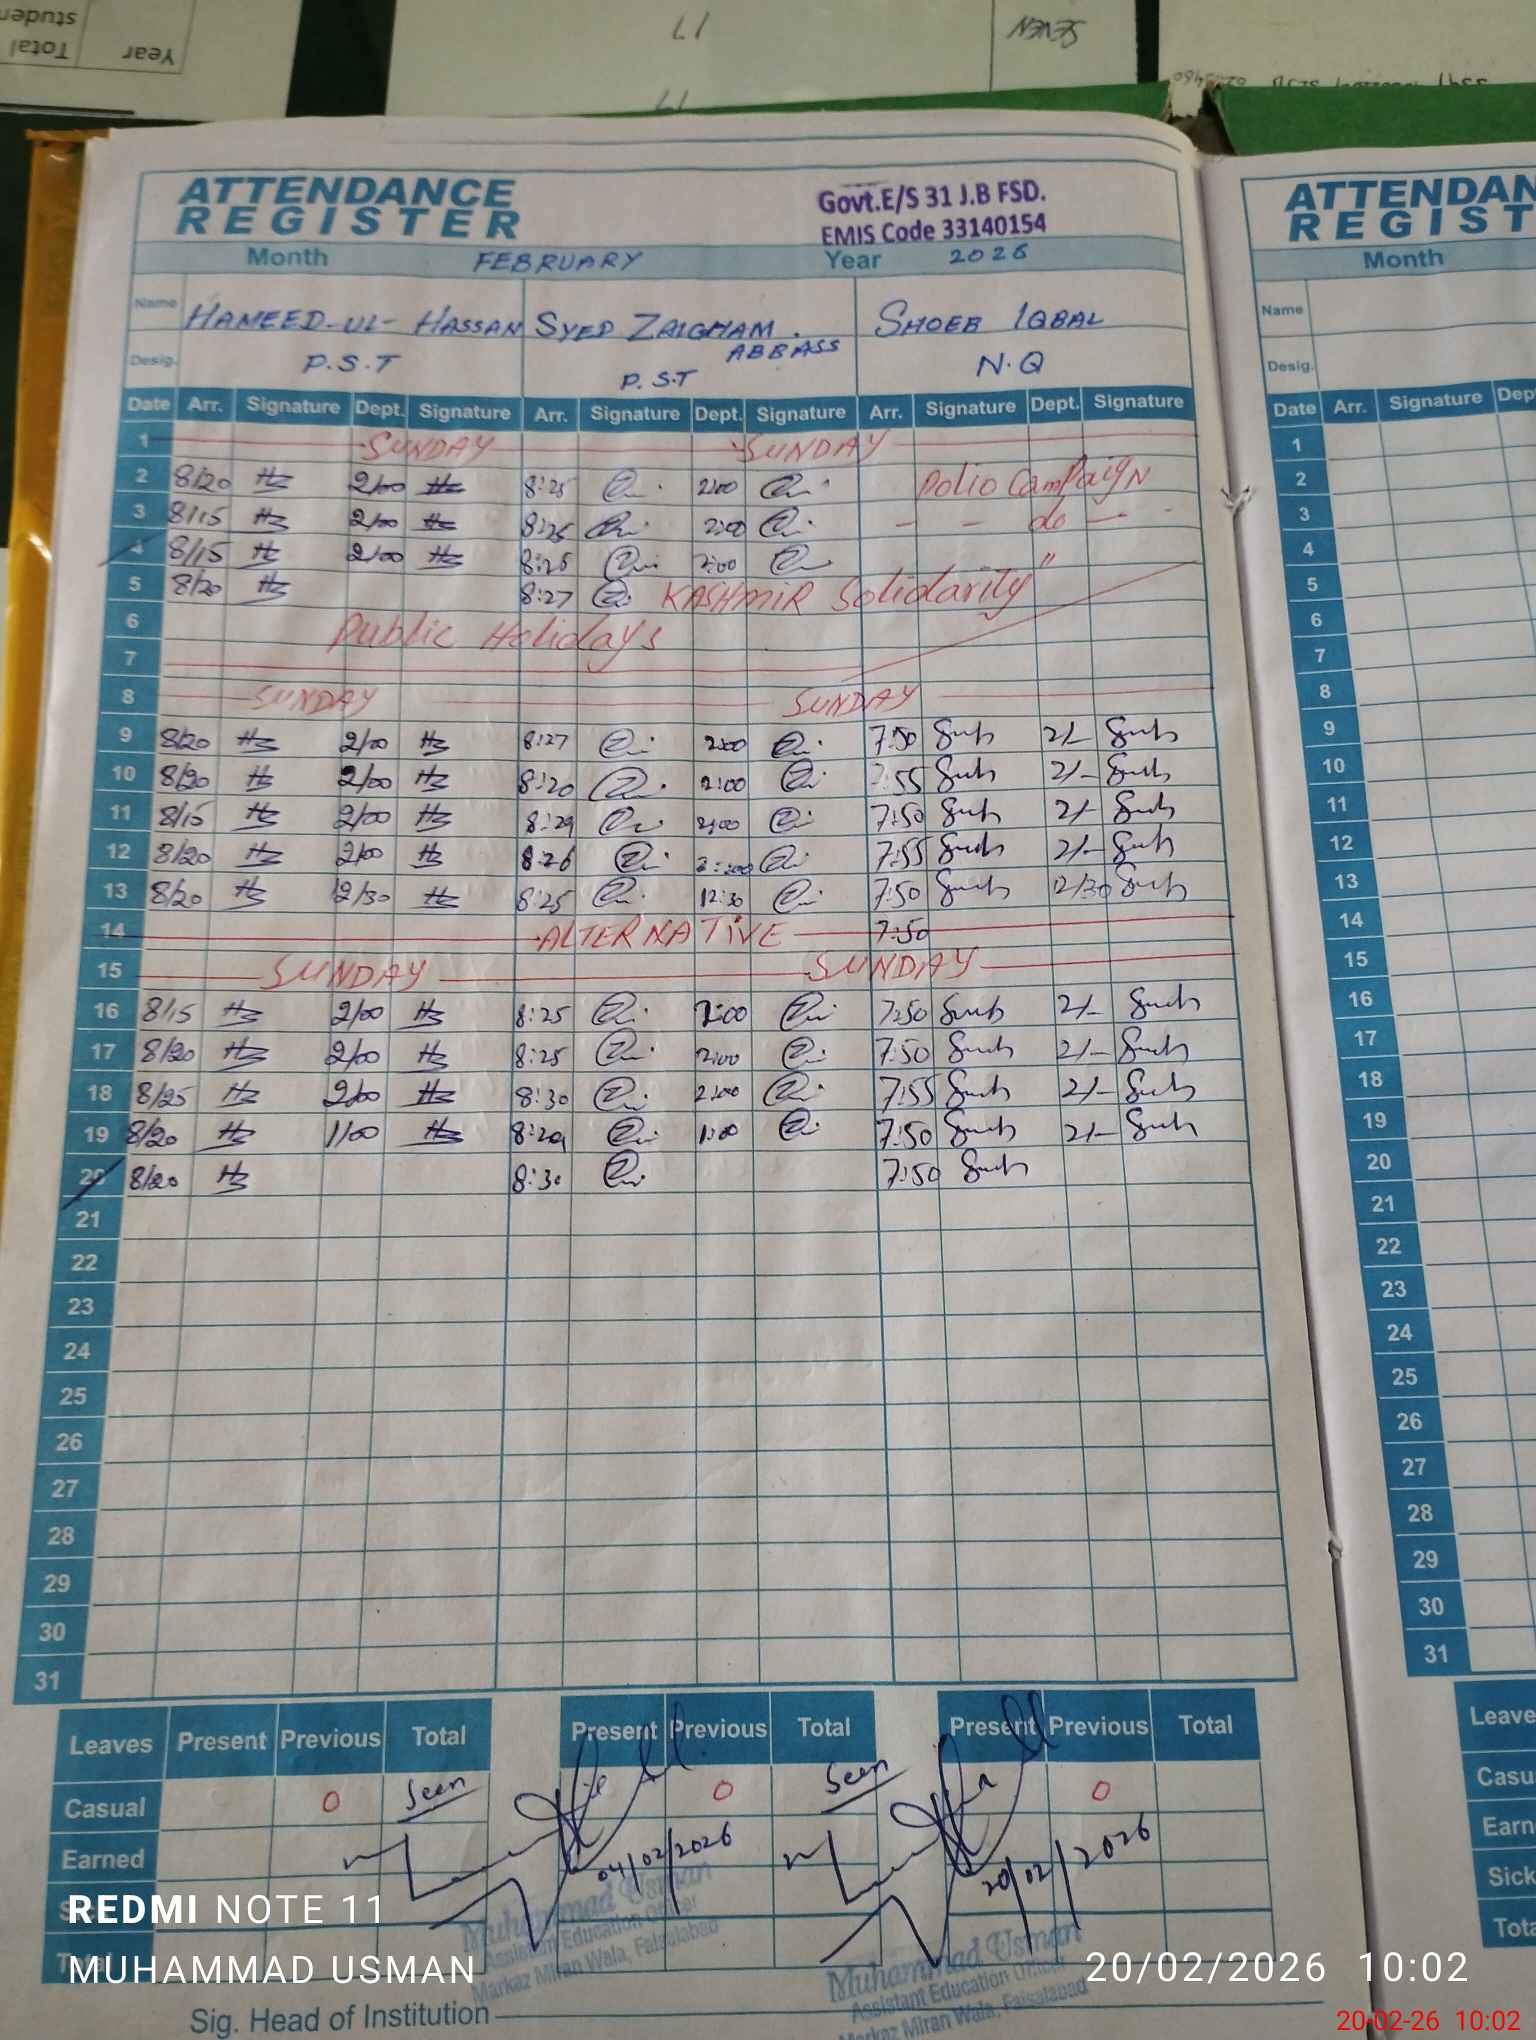 Year
Total
student
17
17
SEVEN
ATTENDANCE
REGISTER
Govt.E/S 31 J.B FSD.
EMIS Code 33140154
Month FEBRUARY Year 2026
Name HAMEED-UL-HASSAN SYED ZAIGHAM ABBASS SHOEB IQBAL
Desig. P.S.T P.S.T N.Q
Date Arr. Signature Dept. Signature Arr. Signature Dept. Signature Arr. Signature Dept. Signature
1 SUNDAY SUNDAY
2 8/20 2/00 8:25 2:00 Polio Campaign
3 8/15 2/00 8:25 2:00 - - do - -
4 8/15 2/00 8:25 2:00 "
5 8/20 8:27 KASHMIR Solidarity
6 Public Holidays
7
8 SUNDAY SUNDAY
9 8/20 2/00 8:27 2:00 7:50 2/-
10 8/20 2/00 8:20 2:00 7:55 2/-
11 8/15 2/00 8:29 2:00 7:50 2/-
12 8/20 2/00 8:26 2:00 7:55 2/-
13 8/20 12/30 8:25 12:30 7:50 12/30
14 ALTERNATIVE 7:50
15 SUNDAY SUNDAY
16 8/15 2/00 8:25 2:00 7:50 2/-
17 8/20 2/00 8:25 2:00 7:50 2/-
18 8/25 2/00 8:30 2:00 7:55 2/-
19 8/20 1/00 8:29 1:00 7:50 2/-
20 8/20 8:30 7:50
21
22
23
24
25
26
27
28
29
30
31
Leaves Present Previous Total Present Previous Total Present Previous Total
Casual 0 Seen 0 Seen 0
Earned
04/02/2026 20/02/2026
Total
Muhammad Usman
Assistant Education Officer
Markaz Miran Wala, Faisalabad
Muhammad Usman
Assistant Education Officer
Markaz Miran Wala, Faisalabad
Sig. Head of Institution
ATTENDAN
REGIST
Month
Name
Desig.
Date Arr. Signature Dep
1
2
3
4
5
6
7
8
9
10
11
12
13
14
15
16
17
18
19
20
21
22
23
24
25
26
27
28
29
30
31
Leave
Casu
Earn
Sick
Tota
REDMI NOTE 11
MUHAMMAD USMAN
20/02/2026 10:02
20-02-26 10:02